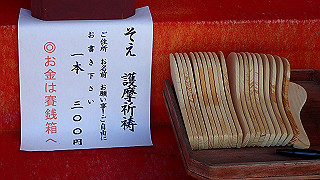 そえ護摩祈祷
ご住所 お名前 お願い事一ご自由に
お書き下さい
一本 三〇〇円
◎お金は賽銭箱へ